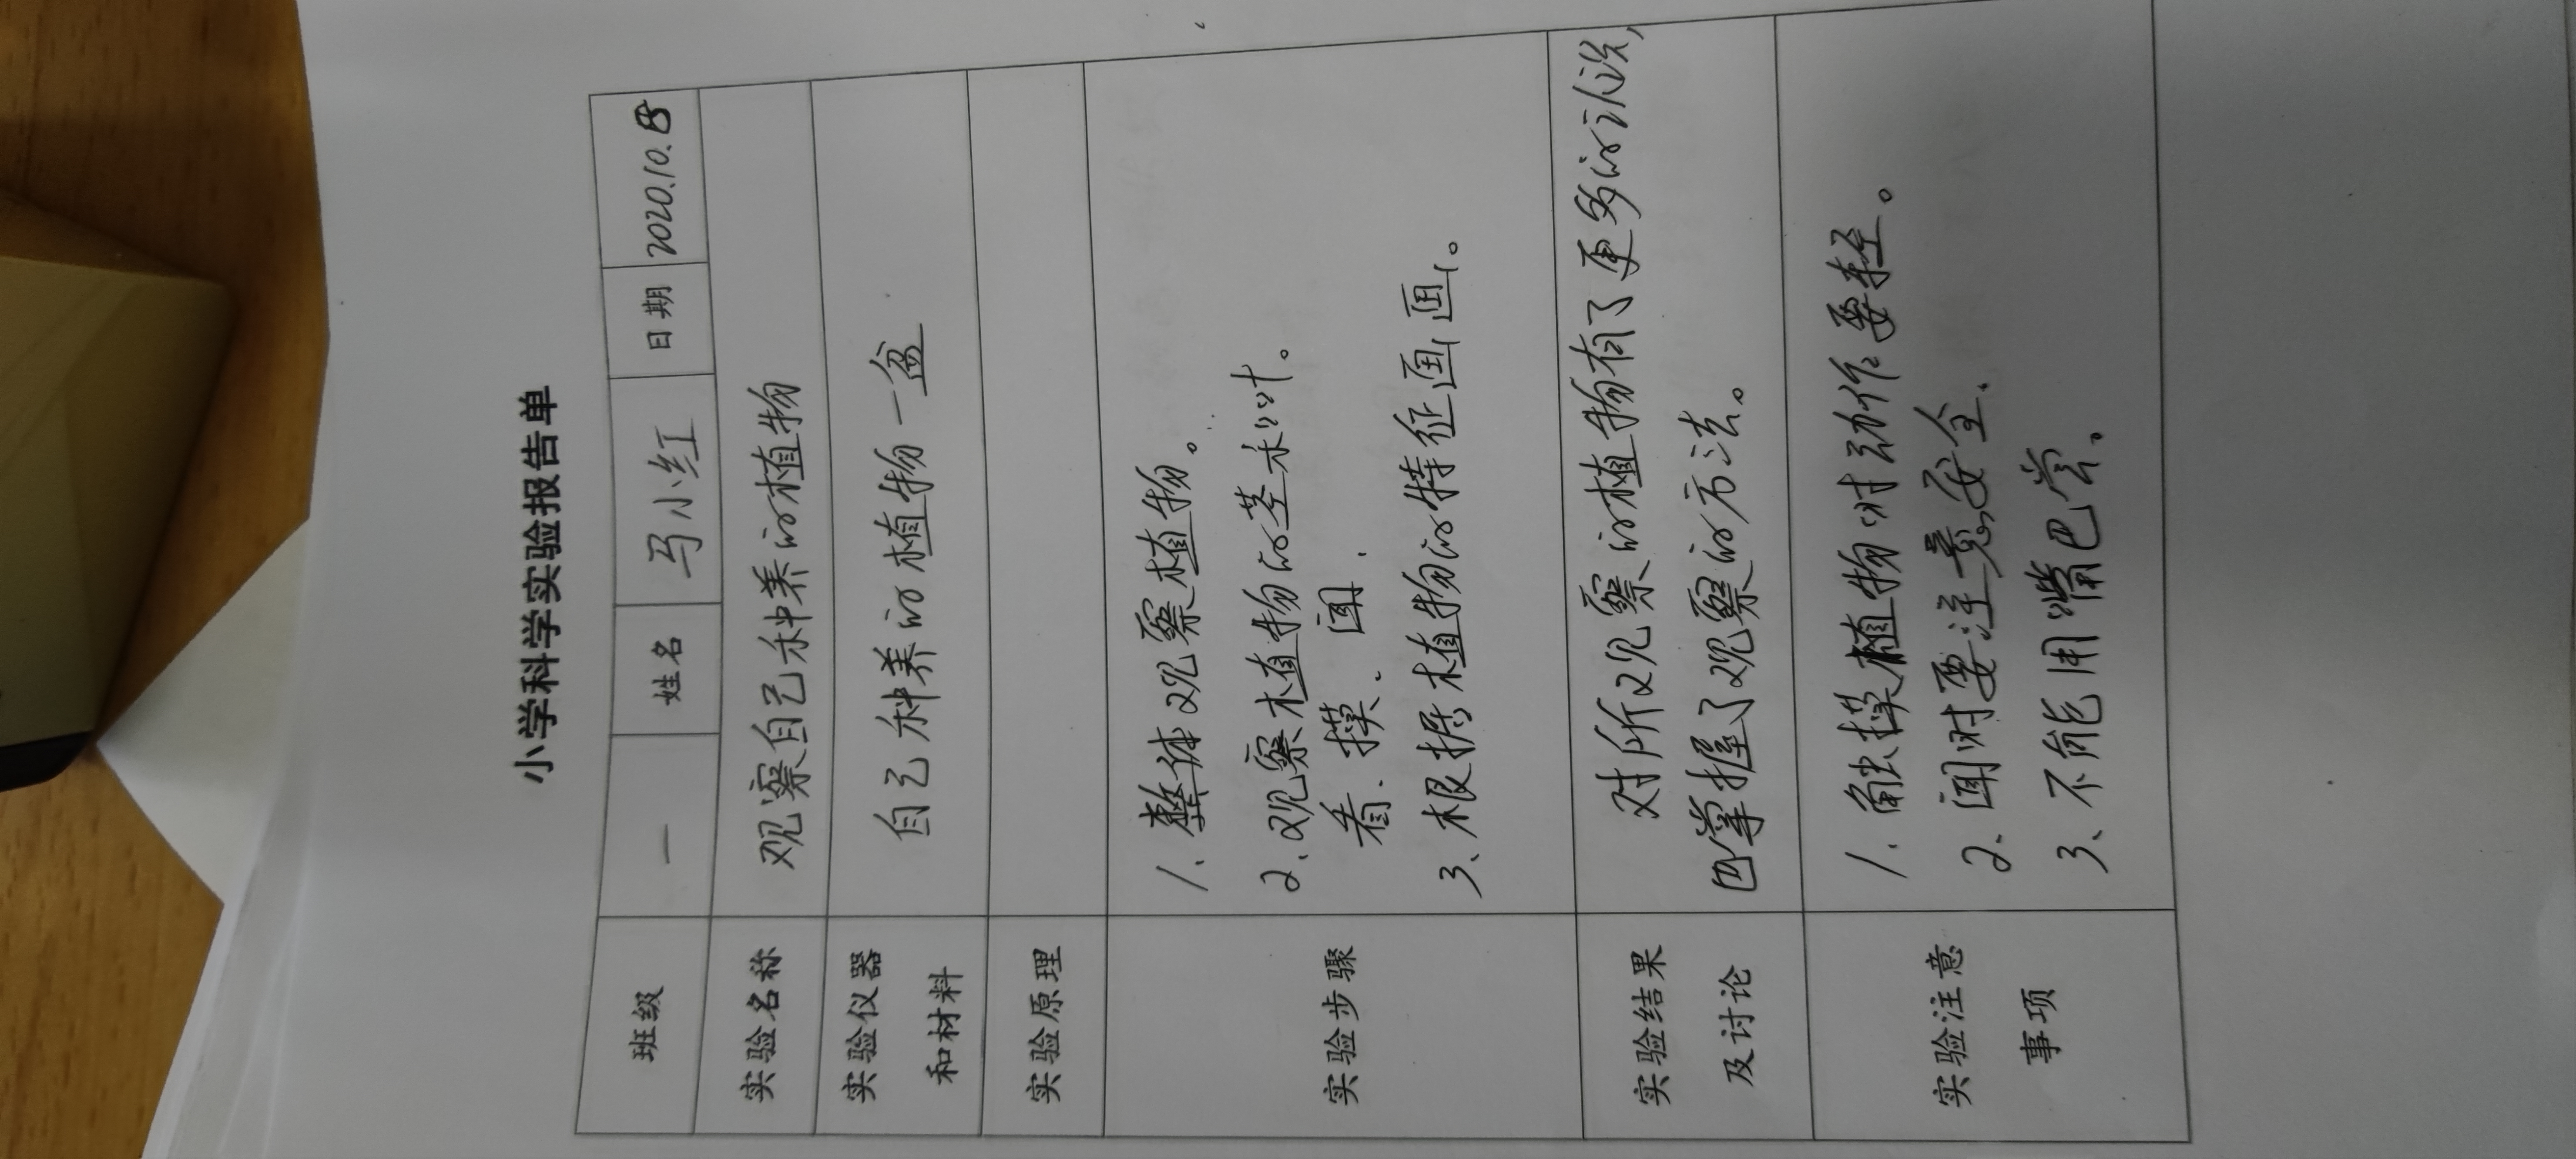 小学科学实验报告单
班级 一 姓名 马小红 日期 2020.10.
实验名称 观察自己种养的植物
实验仪器 自己种养的植物一盆
和材料
实验原理
1、整体观察植物。
2、观察植物的茎和叶。
实验步骤 看、摸、闻、
3、根据植物的特征画画。
实验结果 对所观察的植物有了更多的认识,
及讨论 巴掌握了观察的方法。
1、触摸植物时动作要轻。
实验注意 2、闻时要注意安全、
事项 3、不能用嘴巴尝。